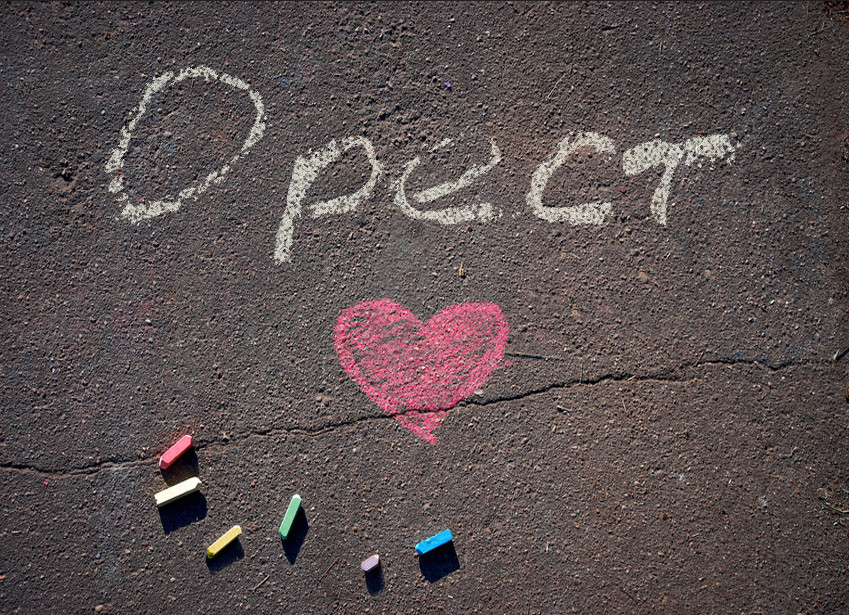 Орест